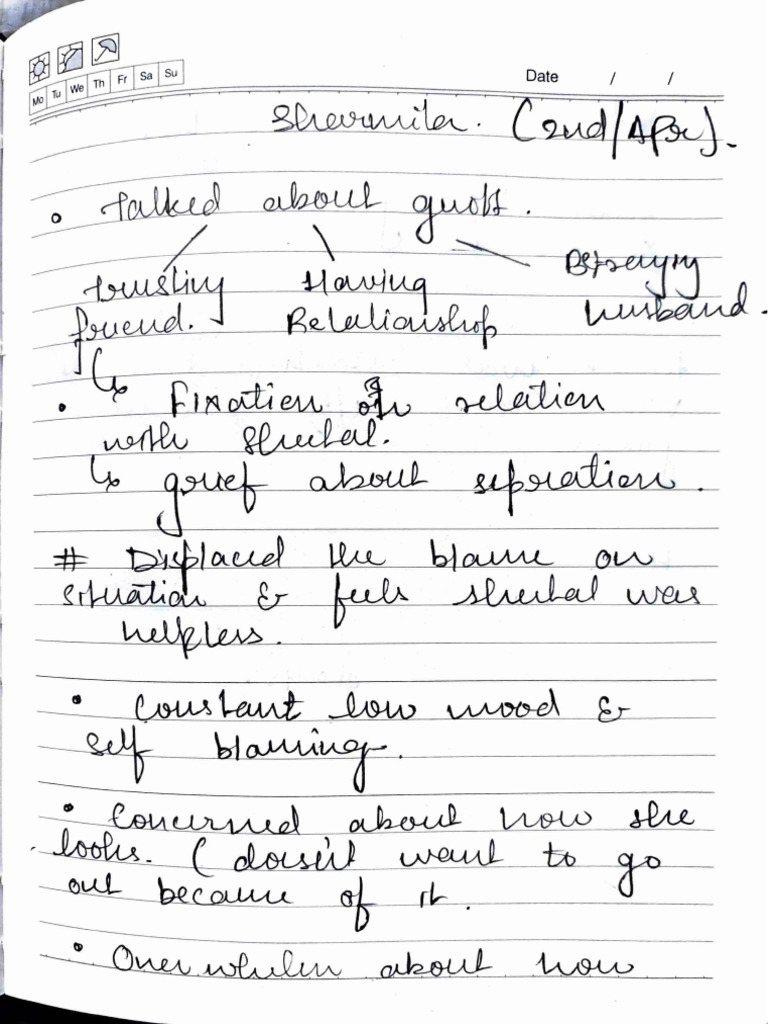 Mo Tu We Th Fr Sa Su
Date / /
Sharmila. (2nd/Apr).
• Talked about guilt.
trusting Having Betraying
friend. Relationship husband.
• Fixation on relation
with
↳ grief about sepration.
# Displaced the blame on
situation & feels was
helpless.
• Constant low mood &
self blaming.
• Concerned about how she
looks. (doesn't want to go
out because of it.
• Overwhelm about how